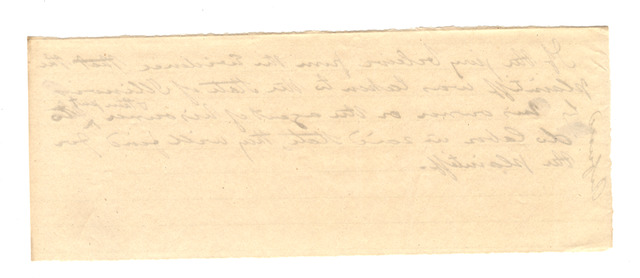 If the jury believe from the Evidence that the
plaintiff was taken to the State of Illinois
by his owner or the agent of his owner, & put to
do labor in said State they will find for
the plaintiff.